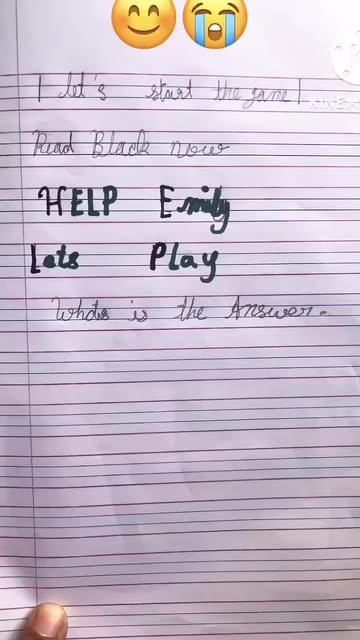 😊😭
| let's start the game |
KINEM
Read Black now
HELP Emily
Lets Play
Whats is the Answer.